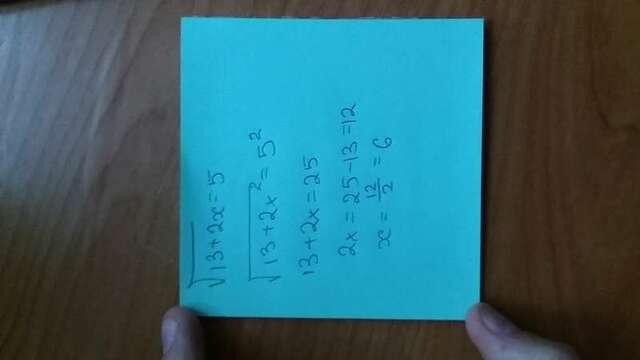 √13+2x = 5
√13+2x² = 5²
13+2x = 25
2x = 25-13 = 12
x = 12/2 = 6